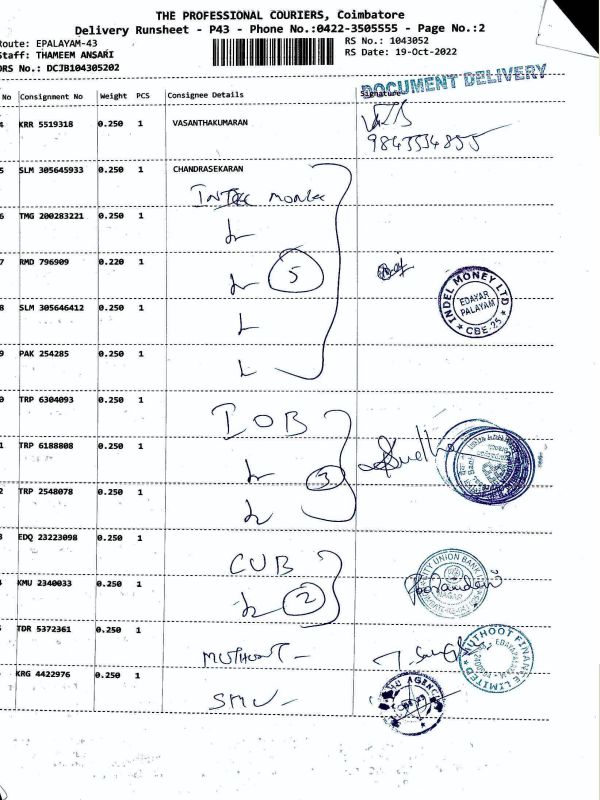 THE PROFESSIONAL COURIERS, Coimbatore
Delivery Runsheet - P43 - Phone No.:0422-3505555 - Page No.:2
Route: EPALAYAM-43 RS No.: 1043052
Staff: THAMEEM ANSARI RS Date: 19-Oct-2022
DRS No.: DCJB104305202
DOCUMENT DELIVERY
No Consignment No Weight PCS Consignee Details Signature
4 KRR 5519318 0.250 1 VASANTHAKUMARAN
5 SLM 305645933 0.250 1 CHANDRASEKARAN
6 TMG 200283221 0.250 1
7 RMD 796909 0.220 1
5
INDEL MONEY LTD
EDAYAR
PALAYAM
CBE-25
8 SLM 305646412 0.250 1
9 PAK 254285 0.250 1
0 TRP 6304093 0.250 1
IOB
1 TRP 6188808 0.250 1
3
2 TRP 2548078 0.250 1
3 EDQ 23223098 0.250 1
CUB
4 KMU 2340033 0.250 1
2
5 TDR 5372361 0.250 1
MUTHOOT -
MUTHOOT FINANCE LIMITED
KRG 4422976 0.250 1
SMU -